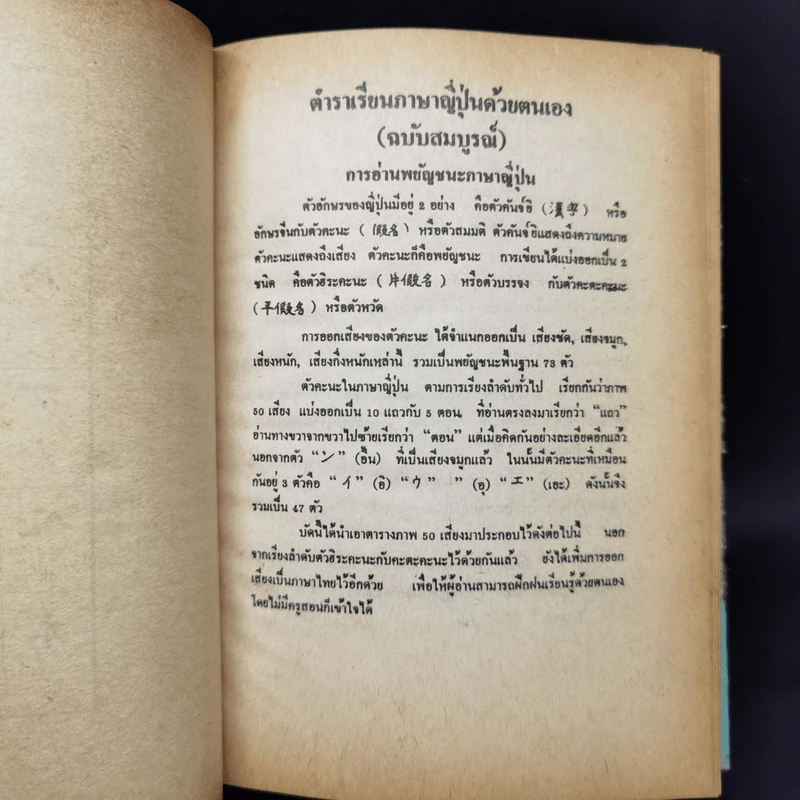 ตำราเรียนภาษาญี่ปุ่นด้วยตนเอง
(ฉบับสมบูรณ์)
การอ่านพยัญชนะภาษาญี่ปุ่น
ตัวอักษรของญี่ปุ่นมีอยู่ 2 อย่าง คือตัวคันจิอิ (漢字) หรือ
อักษรจีนกับตัวคะนะ (假名) หรือตัวสมมติ ตัวคันจิอิแสดงถึงความหมาย
ตัวคะนะแสดงถึงเสียง ตัวคะนะก็คือพยัญชนะ การเขียนได้แบ่งออกเป็น 2
ชนิด คือตัวฮิระคะนะ (片假名) หรือตัวบรรจง กับตัวคะตะคะนะ
(平假名) หรือตัวหวัด
การออกเสียงของตัวคะนะ ได้จำแนกออกเป็น เสียงชัด, เสียงจมูก,
เสียงหนัก, เสียงกึ่งหนักเหล่านี้ รวมเป็นพยัญชนะพื้นฐาน 73 ตัว
ตัวคะนะในภาษาญี่ปุ่น ตามการเรียงลำดับทั่วไป เรียกกันว่าภาพ
50 เสียง แบ่งออกเป็น 10 แถวกับ 5 ตอน, ที่อ่านตรงลงมาเรียกว่า “แถว”
อ่านทางขวาจากขวาไปซ้ายเรียกว่า “ตอน” แต่เมื่อคิดกันอย่างละเอียดอีกแล้ว
นอกจากตัว “ン” (อึ้น) ที่เป็นเสียงจมูกแล้ว ในนั้นมีตัวคะนะที่เหมือน
กันอยู่ 3 ตัวคือ “イ” (อิ) “ウ” ” (อุ) “エ” (เอะ) ดังนั้นจึง
รวมเป็น 47 ตัว
บัดนี้ได้นำเอาตารางภาพ 50 เสียงมาประกอบไว้ดังต่อไปนี้ นอก
จากเรียงลำดับตัวฮิระคะนะกับคะตะคะนะไว้ด้วยกันแล้ว ยังได้เพิ่มการออก
เสียงเป็นภาษาไทยไว้อีกด้วย เพื่อให้ผู้อ่านสามารถฝึกฝนเรียนรู้ด้วยตนเอง
โดยไม่มีครูสอนก็เข้าใจได้